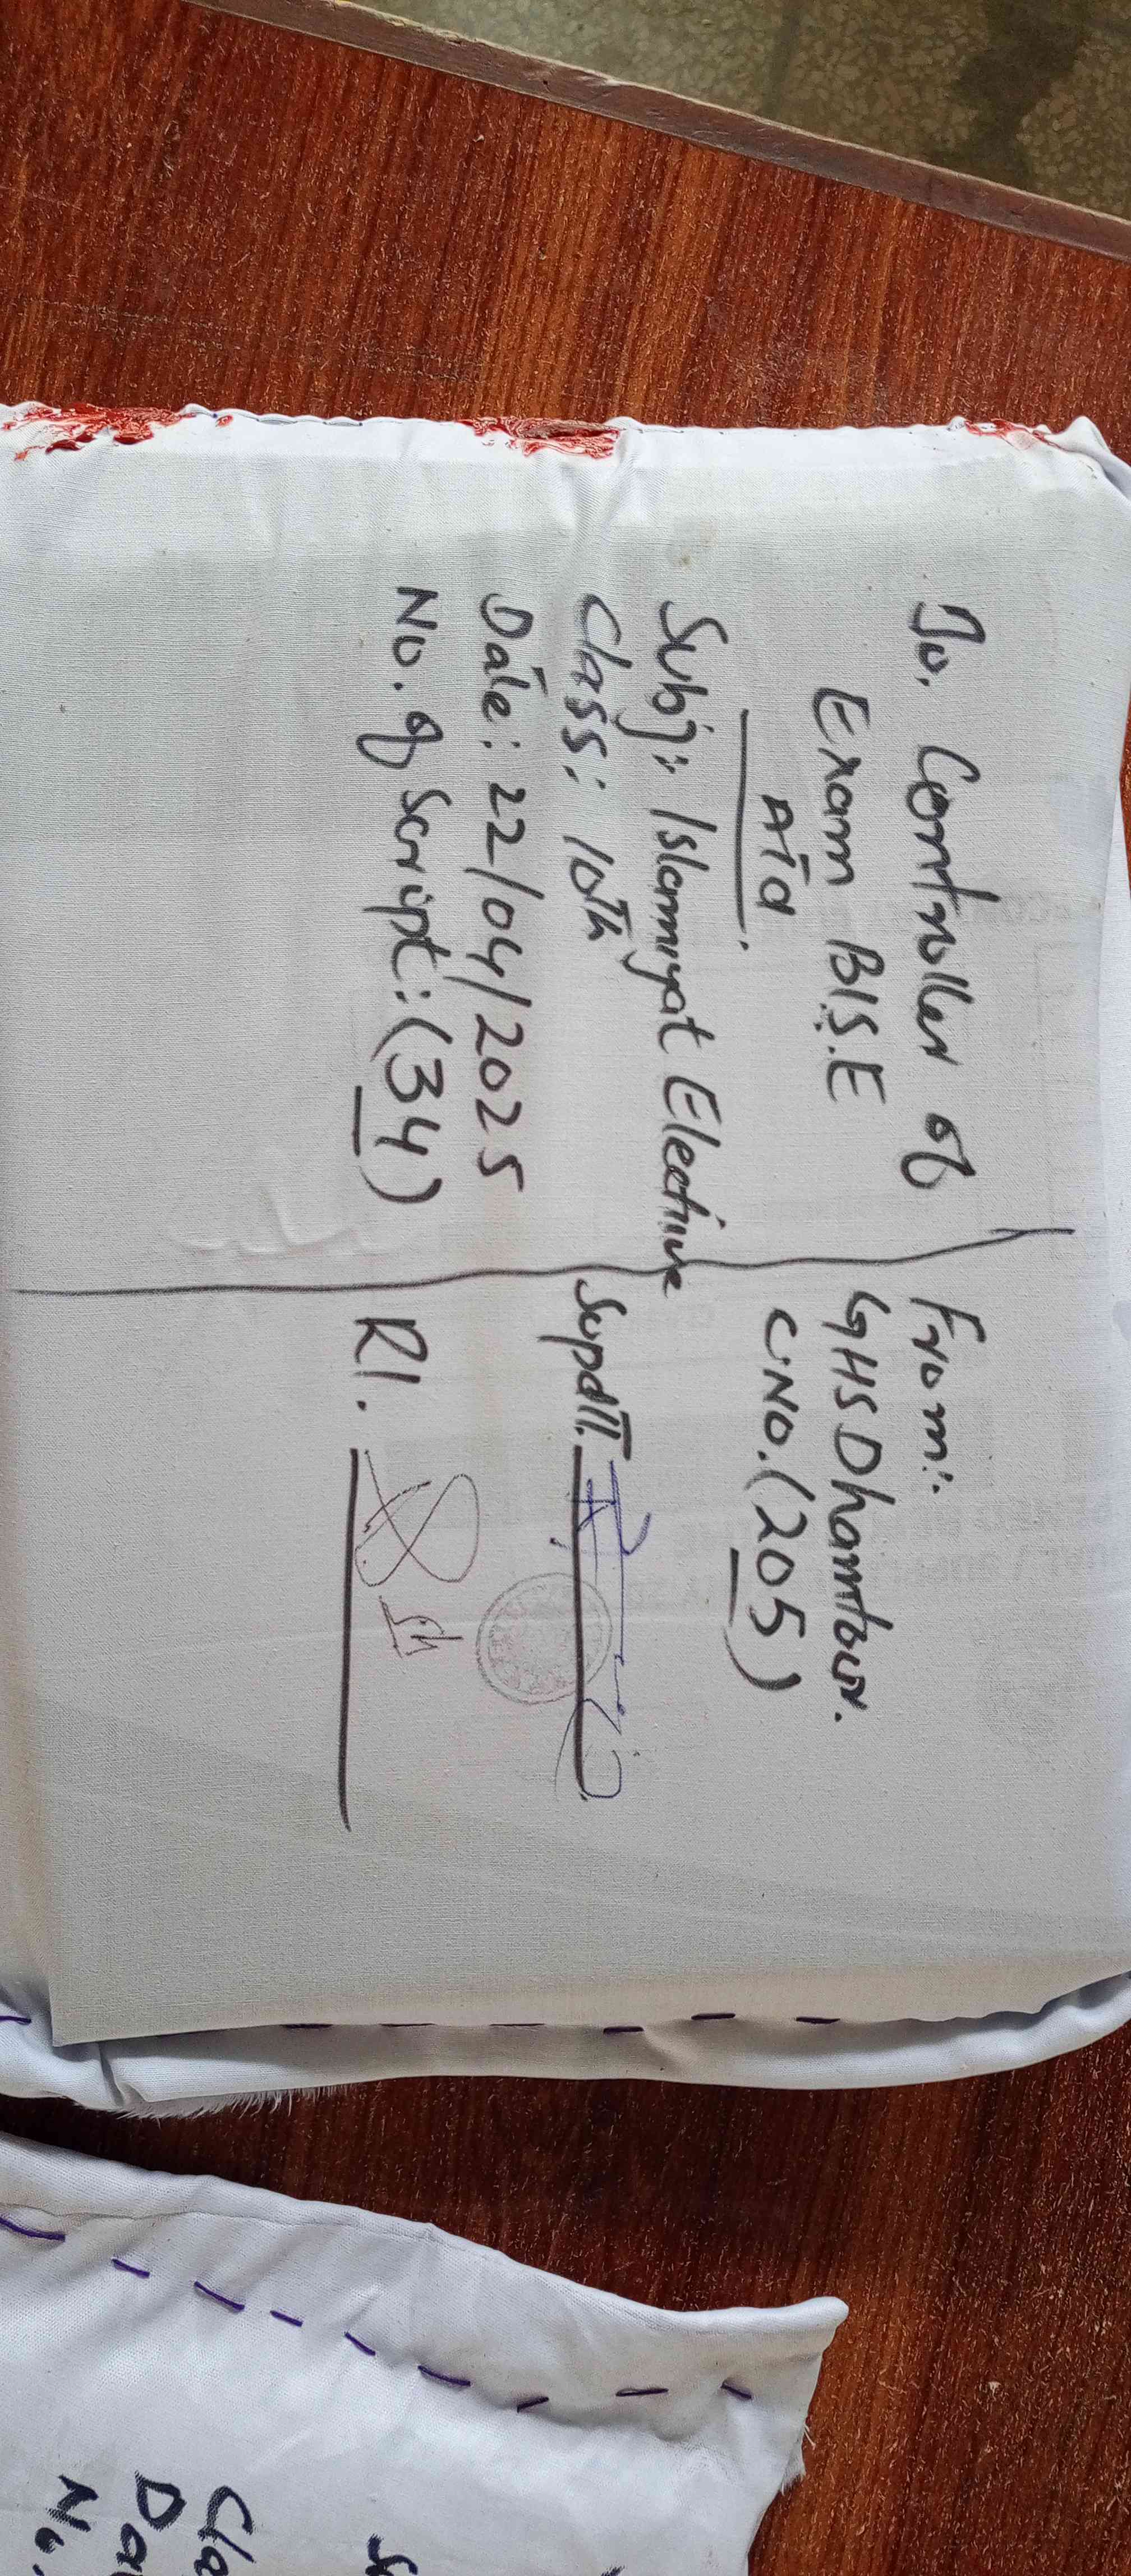 To. Controller of
Exam B.I.S.E
ATd.
Subj: Islamiyat Elective
Class: 10th
Date: 22/04/2025
No. of Script: (34)
From:
GHS Dhamtour.
C.NO. (205)
Supdtt.
RI.
Cla
Da
No.